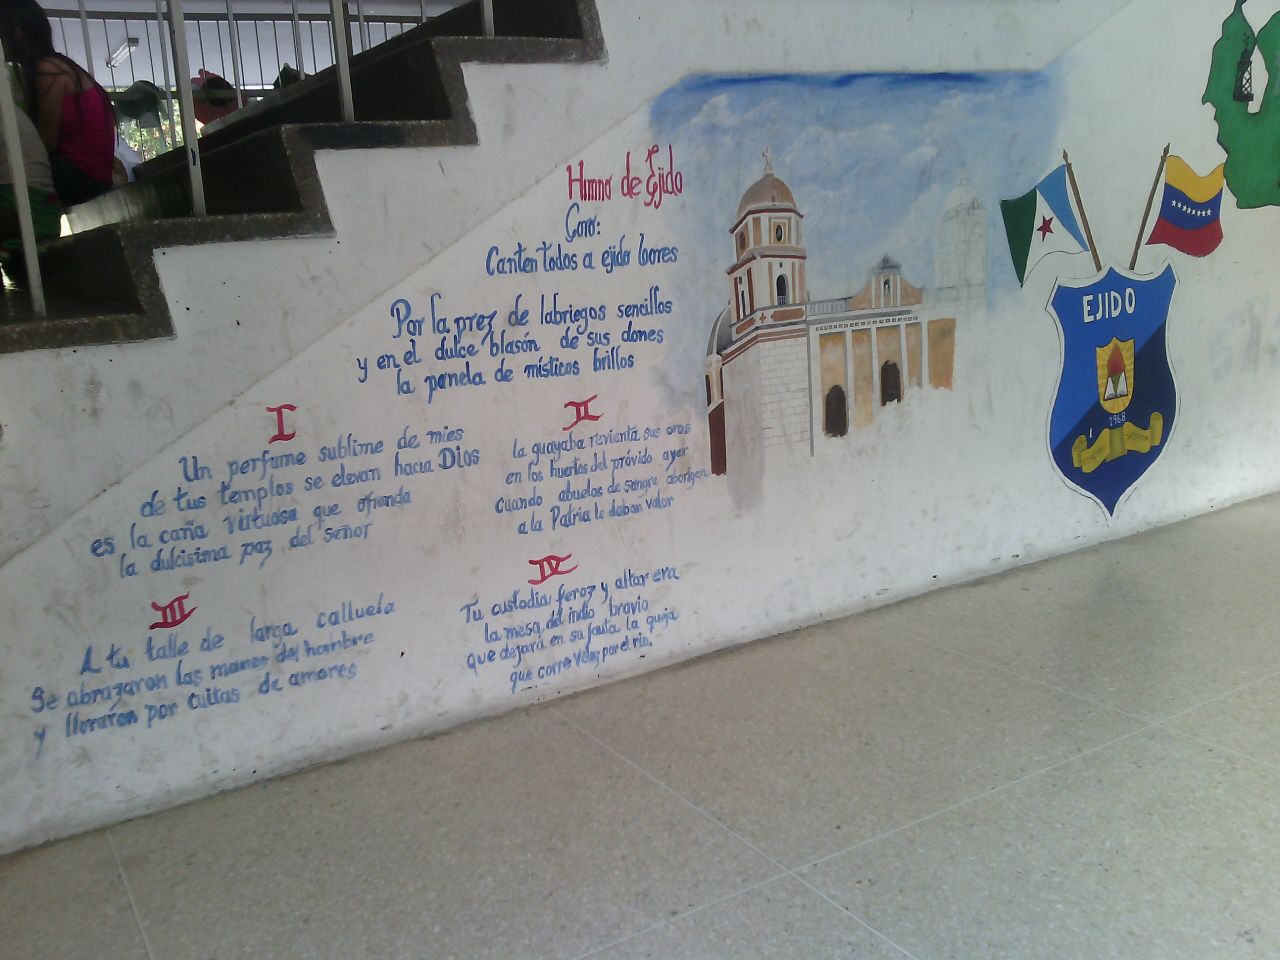 Himno de Ejido
Coro:
Canten todos a ejido loores
Por la prez de labriegos sencillos
y en el dulce blasón de sus dones
la panela de místicos brillos
I
Un perfume sublime de mies
de tus templos se elevan hacia Dios
es la caña virtuosa que ofrenda
la dulcisima paz del señor
II
la guayaba revienta sus oros
en los huertos del próvido ayer
cuando abuelos de sangre aborigen
a la Patria le daban valor
III
A tu talle de larga calluela
Se abrazaron las manos del hombre
y lloraron por cuitas de amores
IV
Tu custodia feroz y altar era
la mesa del indio bravio
que dejará en su fauta la queja
que corre veloz por el rio.
EJIDO
1968